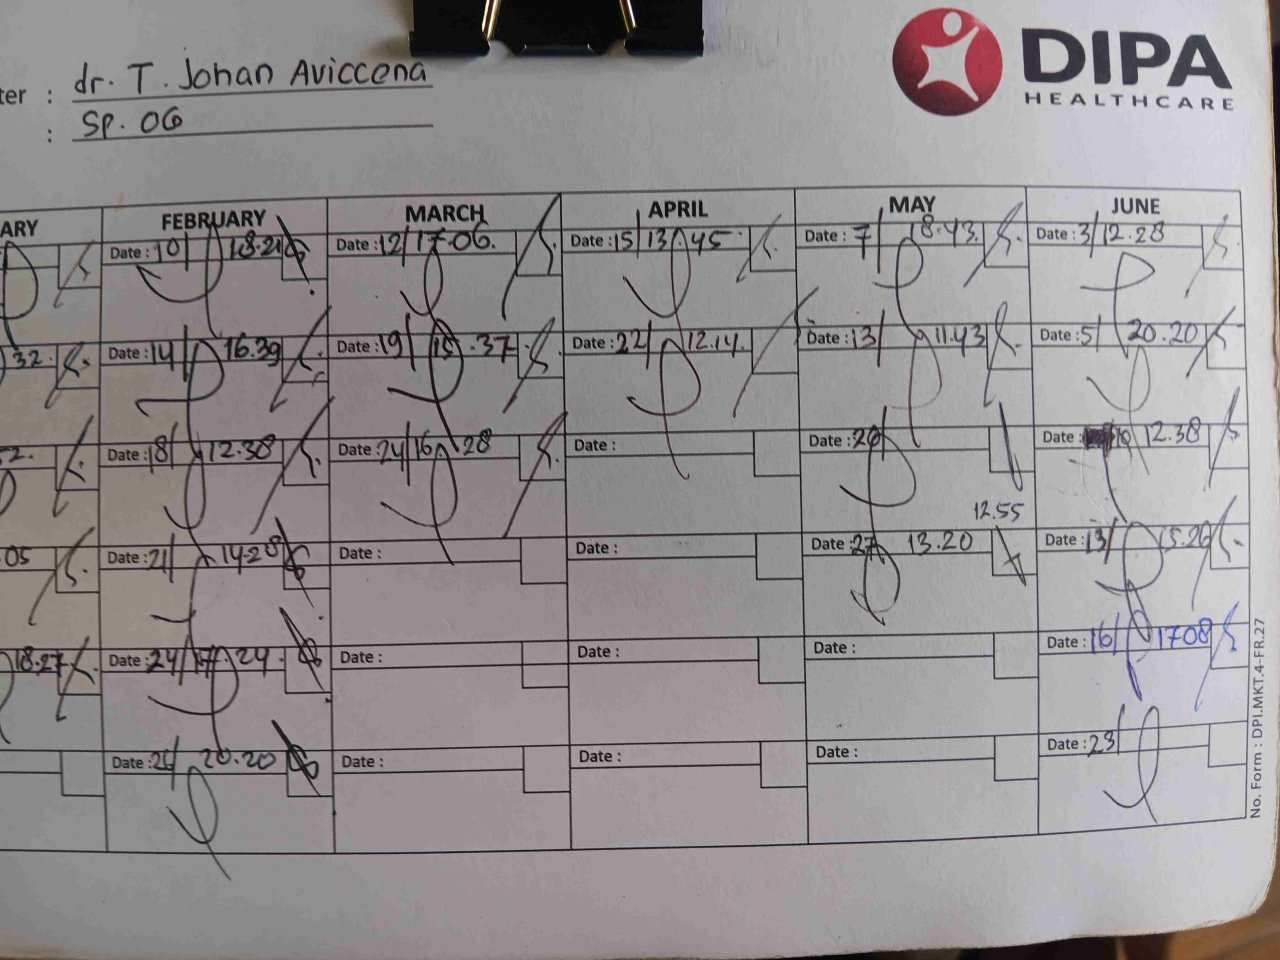 dr. T. Johan Aviccena
ter :
: Sp. OG
DIPA
HEALTHCARE
ARY FEBRUARY MARCH APRIL MAY JUNE
Date : 10/ 18.21 Date : 12/17.06. Date : 15/13.45 Date : 7/ 18.43. Date : 3/12.28
32. Date : 14/ 16.39 Date : 19/15.37 Date : 22/ 12.14. Date : 13/ 11.43 Date : 5/ 20.20
2. Date : 18/ 12.38 Date : 24/16 28 Date : Date : 20/ Date : 10 12.38
12.55
05 Date : 21/ 14.28 Date : Date : Date : 27 13.20 Date : 13/ 15.26
18.27 Date : 24/17 24. Date : Date : Date : Date : 16/ 1708
Date : 26/ 20.20 Date : Date : Date : Date : 23/
No. Form : DPI.MKT.4-FR.27